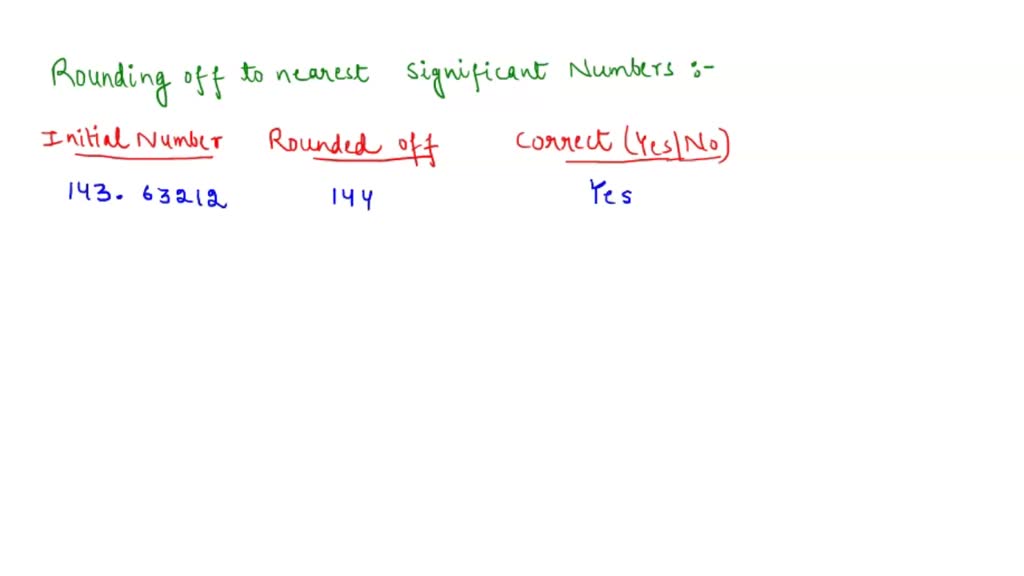 Rounding off to nearest significant Numbers :-
Initial Number Rounded off Correct (Yes|No)
143. 63212 144 Yes